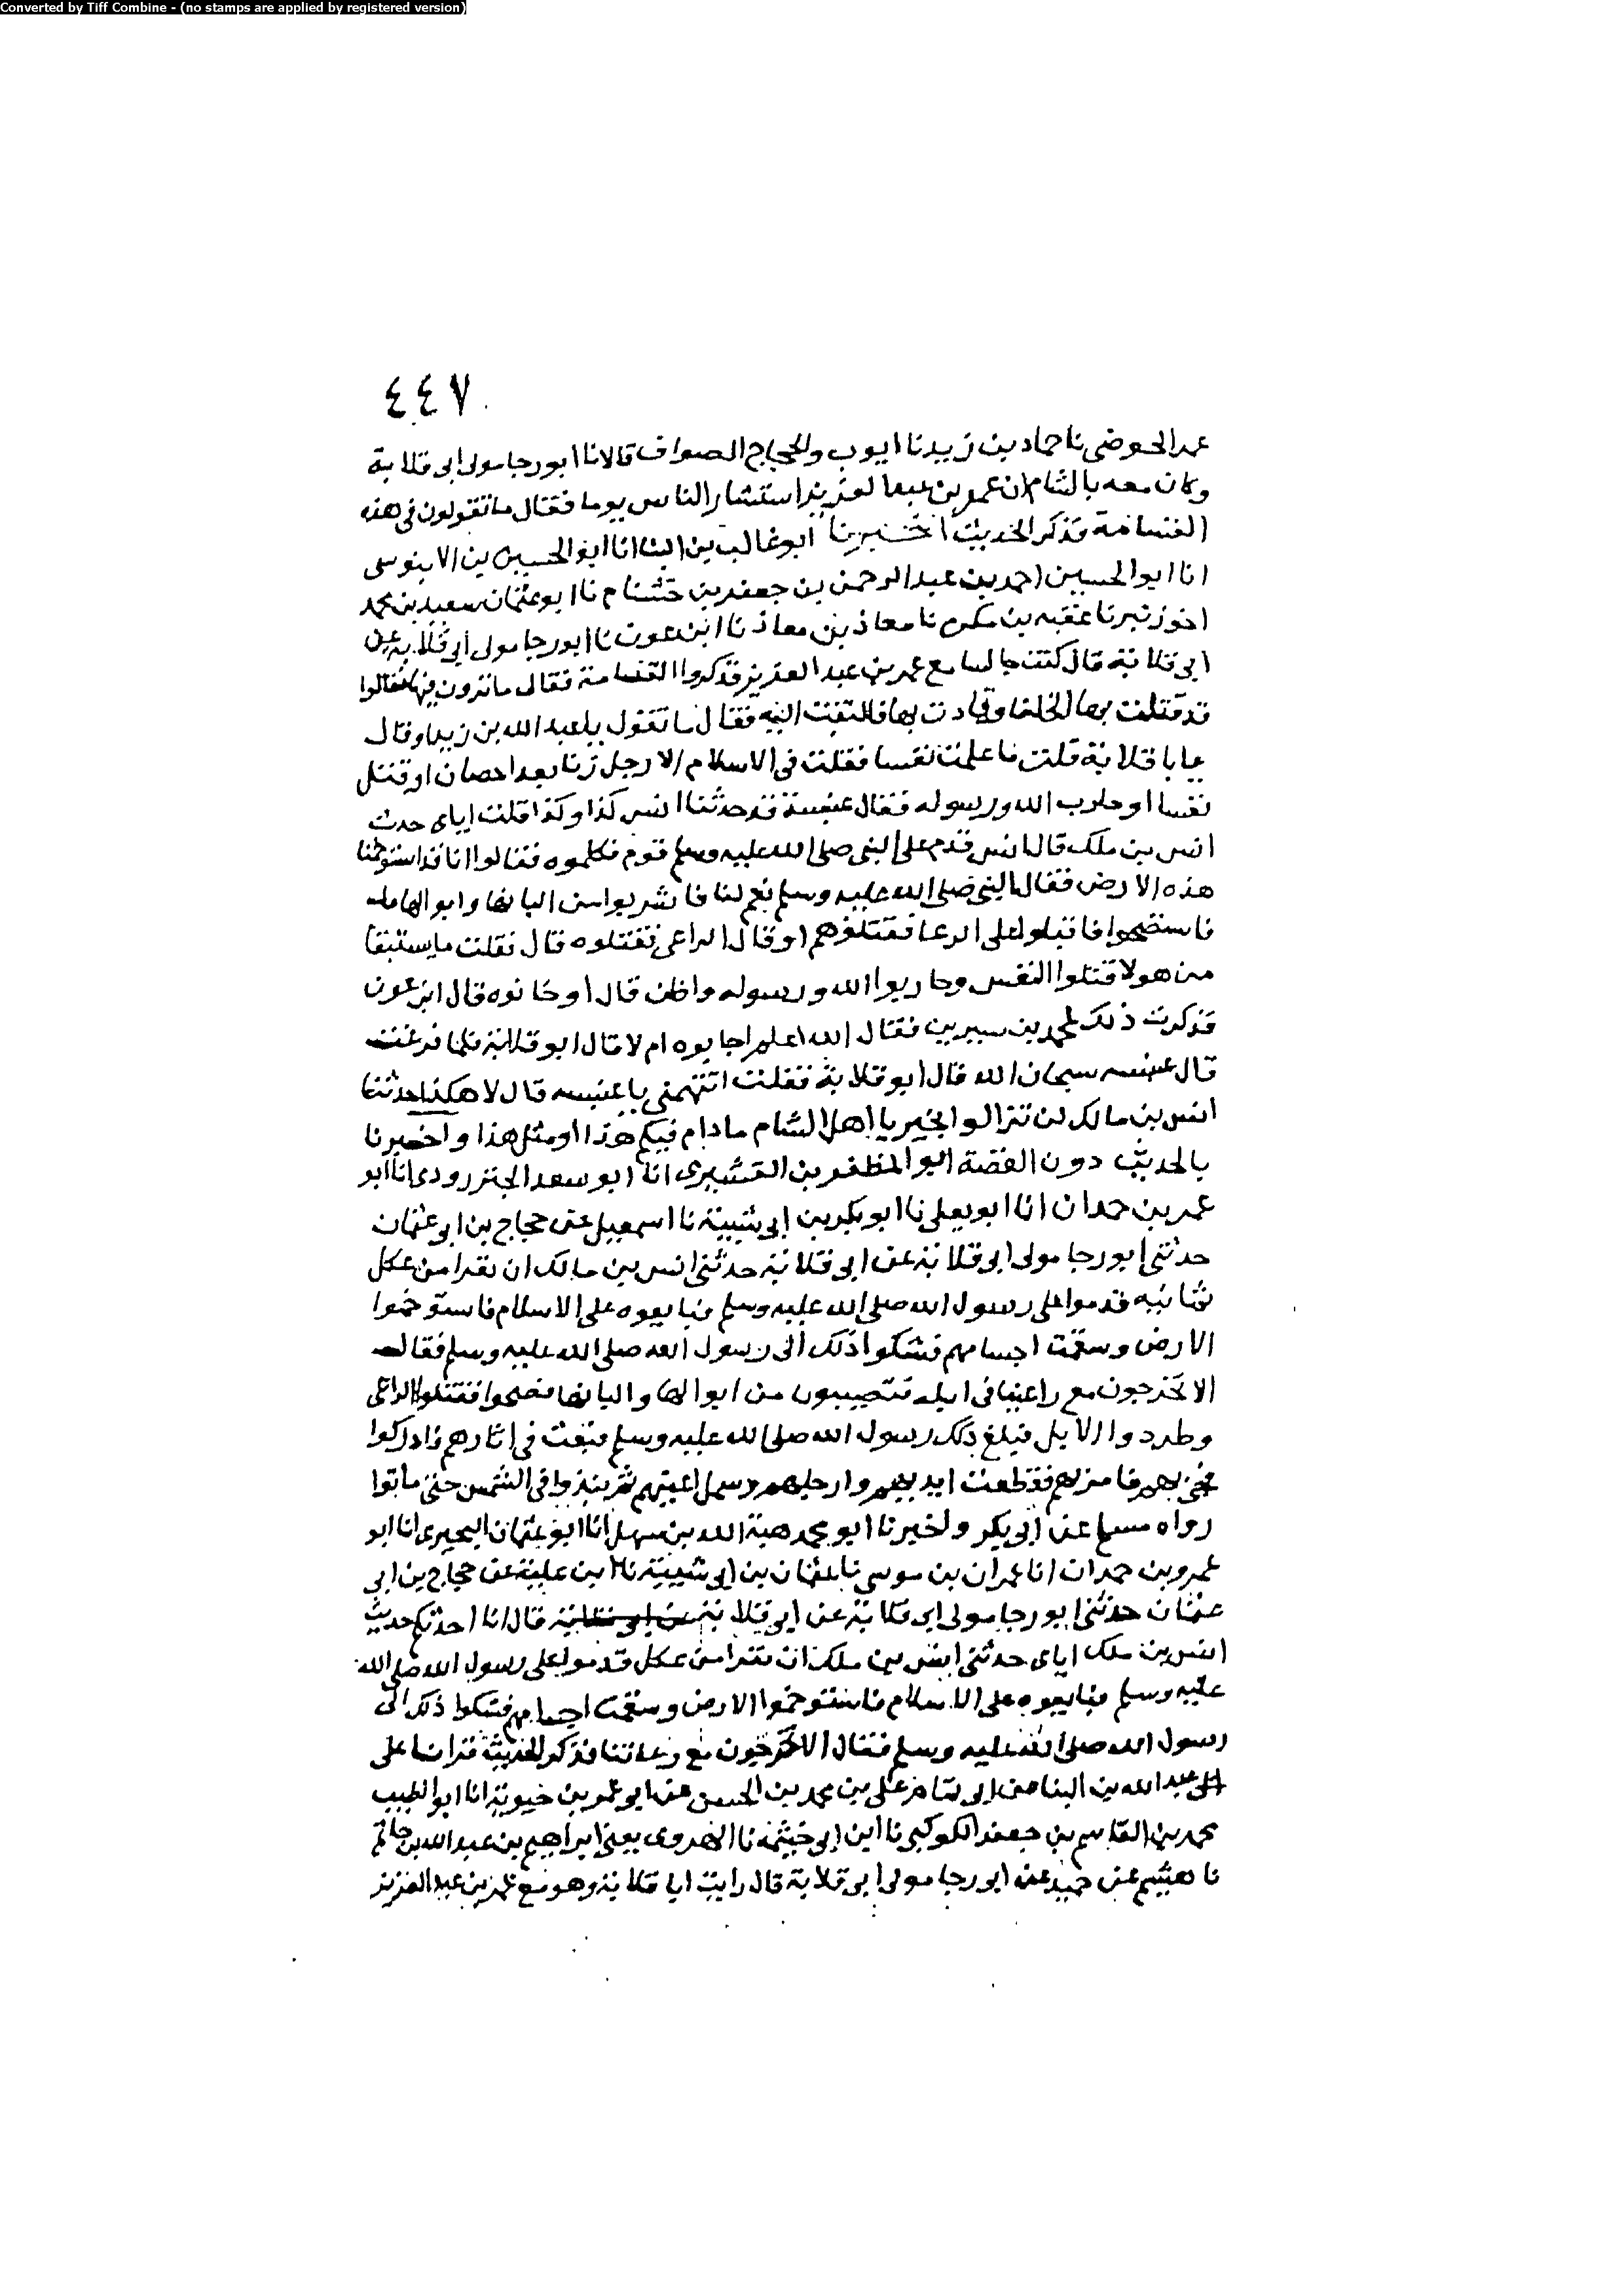 Converted by Tiff Combine - (no stamps are applied by registered version)
٤٤٧
عمر الحوضي نا حماد بن زيد نا ايوب والحجاج الصواف قالا نا ابو رجا مولى ابي قلابة
وكان معه بالشام ان عمر بن عبد العزيز استشار الناس يوما فقال ما تقولون في هذه
القسامة فذكر الحديث اخبرنا ابو غالب بن البنا انا ابو الحسين بن الابنوسي
انا ابو الحسين احمد بن عبد الرحمن بن جعفر بن خشنام نا ابو عثمان سعيد بن محمد
اخو زبير نا عقبه بن مكرم نا معاذ بن معاذ نا ابن عون نا ابو رجا مولى ابي قلابه عن
ابي قلابة قال كنت جالسا مع عمر بن عبد العزيز فذكروا القسامة فقال ما ترون فيها فقالوا
قد قتلت بها الخلفا وقادت بها فالتفت اليه فقال ما تقول يا عبد الله بن زيد او قال
يا ابا قلابة قلت ما علمت نفسا فقلت في الاسلام الا رجل زنا بعد احصان او قتل
نفسا او حارب الله ورسوله فقال عنبسة قد حدثنا انس كذا وكذا قلت اياى حدث
انس بن ملك قال انس قدم على النبي صلى الله عليه وسلم قوم فكلموه فقالوا انا قد استوخمنا
هذه الارض فقال النبي صلى الله عليه وسلم نعم لنا فاشربوا من البانها وابوالها
فاستصحوا فاقبلوا على الرعا فقتلوهم او قال الراعي فقتلوه قال فقلت ما يستبقا
من هولا قتلوا النفس وحاربوا الله ورسوله واظن قال او خانوه قال ابن عون
فذكرت ذلك لمحمد بن سيرين فقال الله اعلم اجابوه ام لا قال ابو قلابة فلما فرغت
قال عنبسه سبحان الله قال ابو قلابة فقلت اتتهمني يا عنبسه قال لا هكذا حدثنا
انس بن مالك لن تزالوا بخير يا اهل الشام ما دام فيكم هذا او مثل هذا واخبرنا
بالحديث دون القصة ابو المظفر بن القشيري انا ابو سعد الجنزرودي انا ابو
عمر بن حمدان انا ابو يعلى نا ابو بكر بن ابي شيبة نا اسمعيل عن حجاج بن ابي عثمان
حدثني ابو رجا مولى ابي قلابة عن ابي قلابة حدثني انس بن مالك ان نفرا من عكل
ثمانيه قدموا على رسول الله صلى الله عليه وسلم فبايعوه على الاسلام فاستوخموا
الارض وسقمت اجسامهم فشكوا ذلك الى رسول الله صلى الله عليه وسلم فقال
الا تخرجون مع راعينا في ابله فتصيبون من ابوالها والبانها فصحوا فقتلوا الراعي
وطردوا الابل فبلغ ذلك رسول الله صلى الله عليه وسلم فبعث في اثارهم فادركوا
فجئ بهم فامر بهم فقطعت ايديهم وارجلهم وسمل اعينهم ثم نبذوا في الشمس حتى ماتوا
رواه مسلم عن ابي بكر واخبرنا ابو محمد هبة الله بن سهل انا ابو عثمان البحيري انا ابو
عمرو بن حمدان انا عمران بن موسي نا عثمان بن ابي شيبة نا ابن علية عن حجاج بن ابي
عثمان حدثني ابو رجا مولى ابي قلابة عن ابي قلابة عن ابي قلابة قال انا احدثكم حديث
انس بن ملك اياى حدثني انس بن ملك ان نفرا من عكل قدموا على رسول الله صلى الله
عليه وسلم فبايعوه على الاسلام فاستوخموا الارض وسقمت اجسامهم فشكوا ذلك الى
رسول الله صلى الله عليه وسلم فقال الا تخرجون مع رعاتنا فذكر الحديث قرانا على
ابي عبد الله بن البنا عن ابي تمام علي بن محمد بن الحسن عن ابي عمر بن حيوية انا ابو الطيب
محمد بن القاسم بن جعفر الكوكبي نا ابن ابي خيثمة نا الهروى يعني ابراهيم بن عبد الله بن حاتم
نا هشيم عن حميد عن ابو رجا مولى ابي قلابة قال رايت ابا قلابة وهو مع عمر بن عبد العزيز